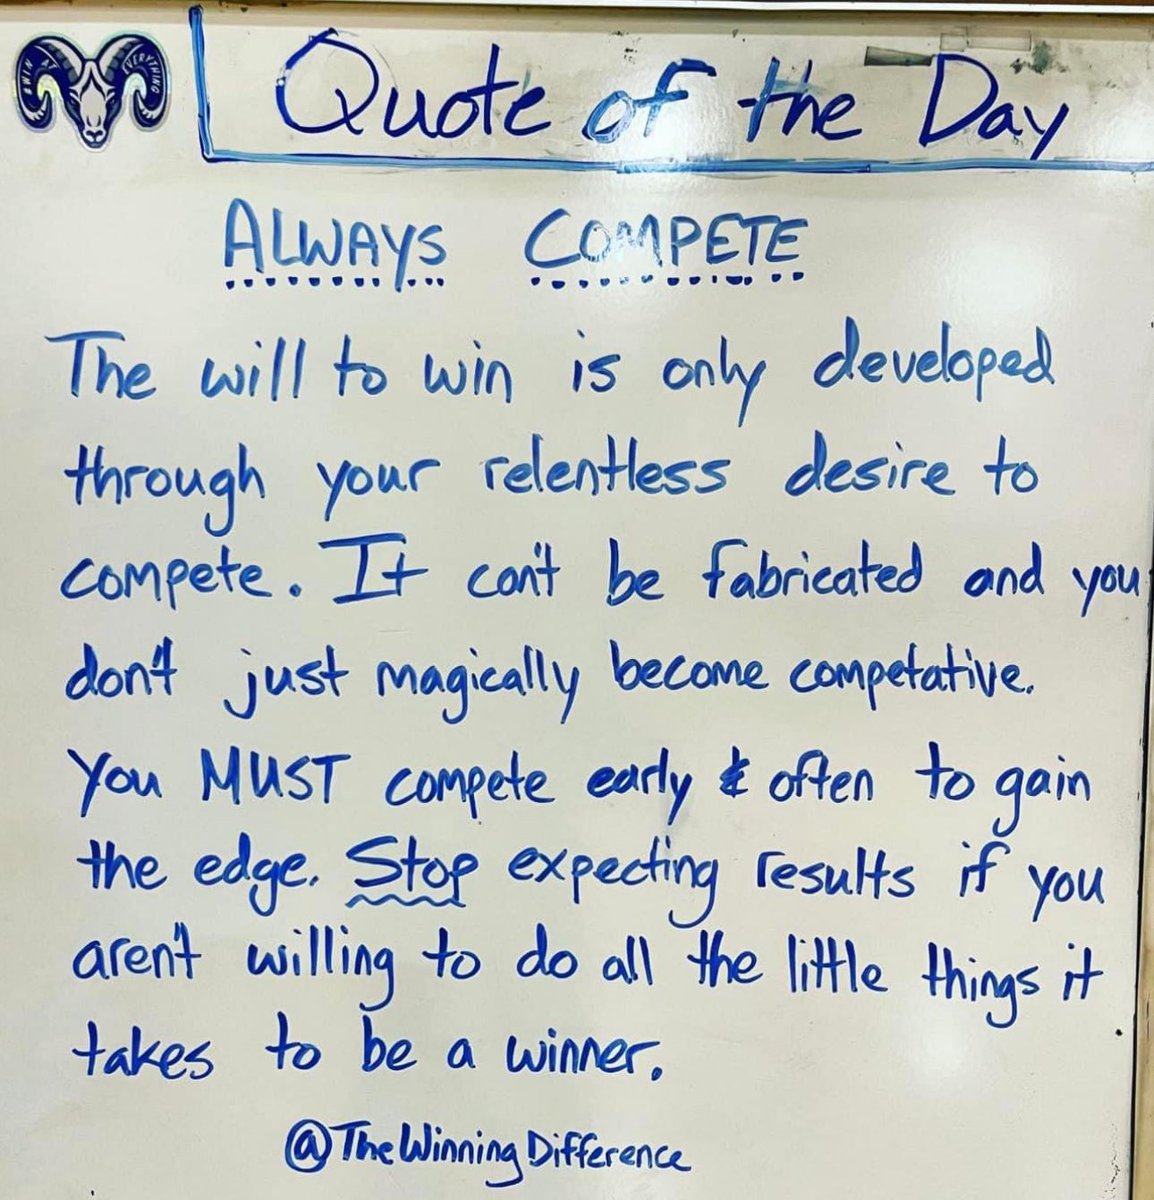 WIN AT EVERYTHING
Quote of the Day
ALWAYS COMPETE
The will to win is only developed
through your relentless desire to
compete. It can't be fabricated and you
don't just magically become competative.
You MUST compete early & often to gain
the edge. Stop expecting results if you
aren't willing to do all the little things it
takes to be a winner.
@TheWinningDifference